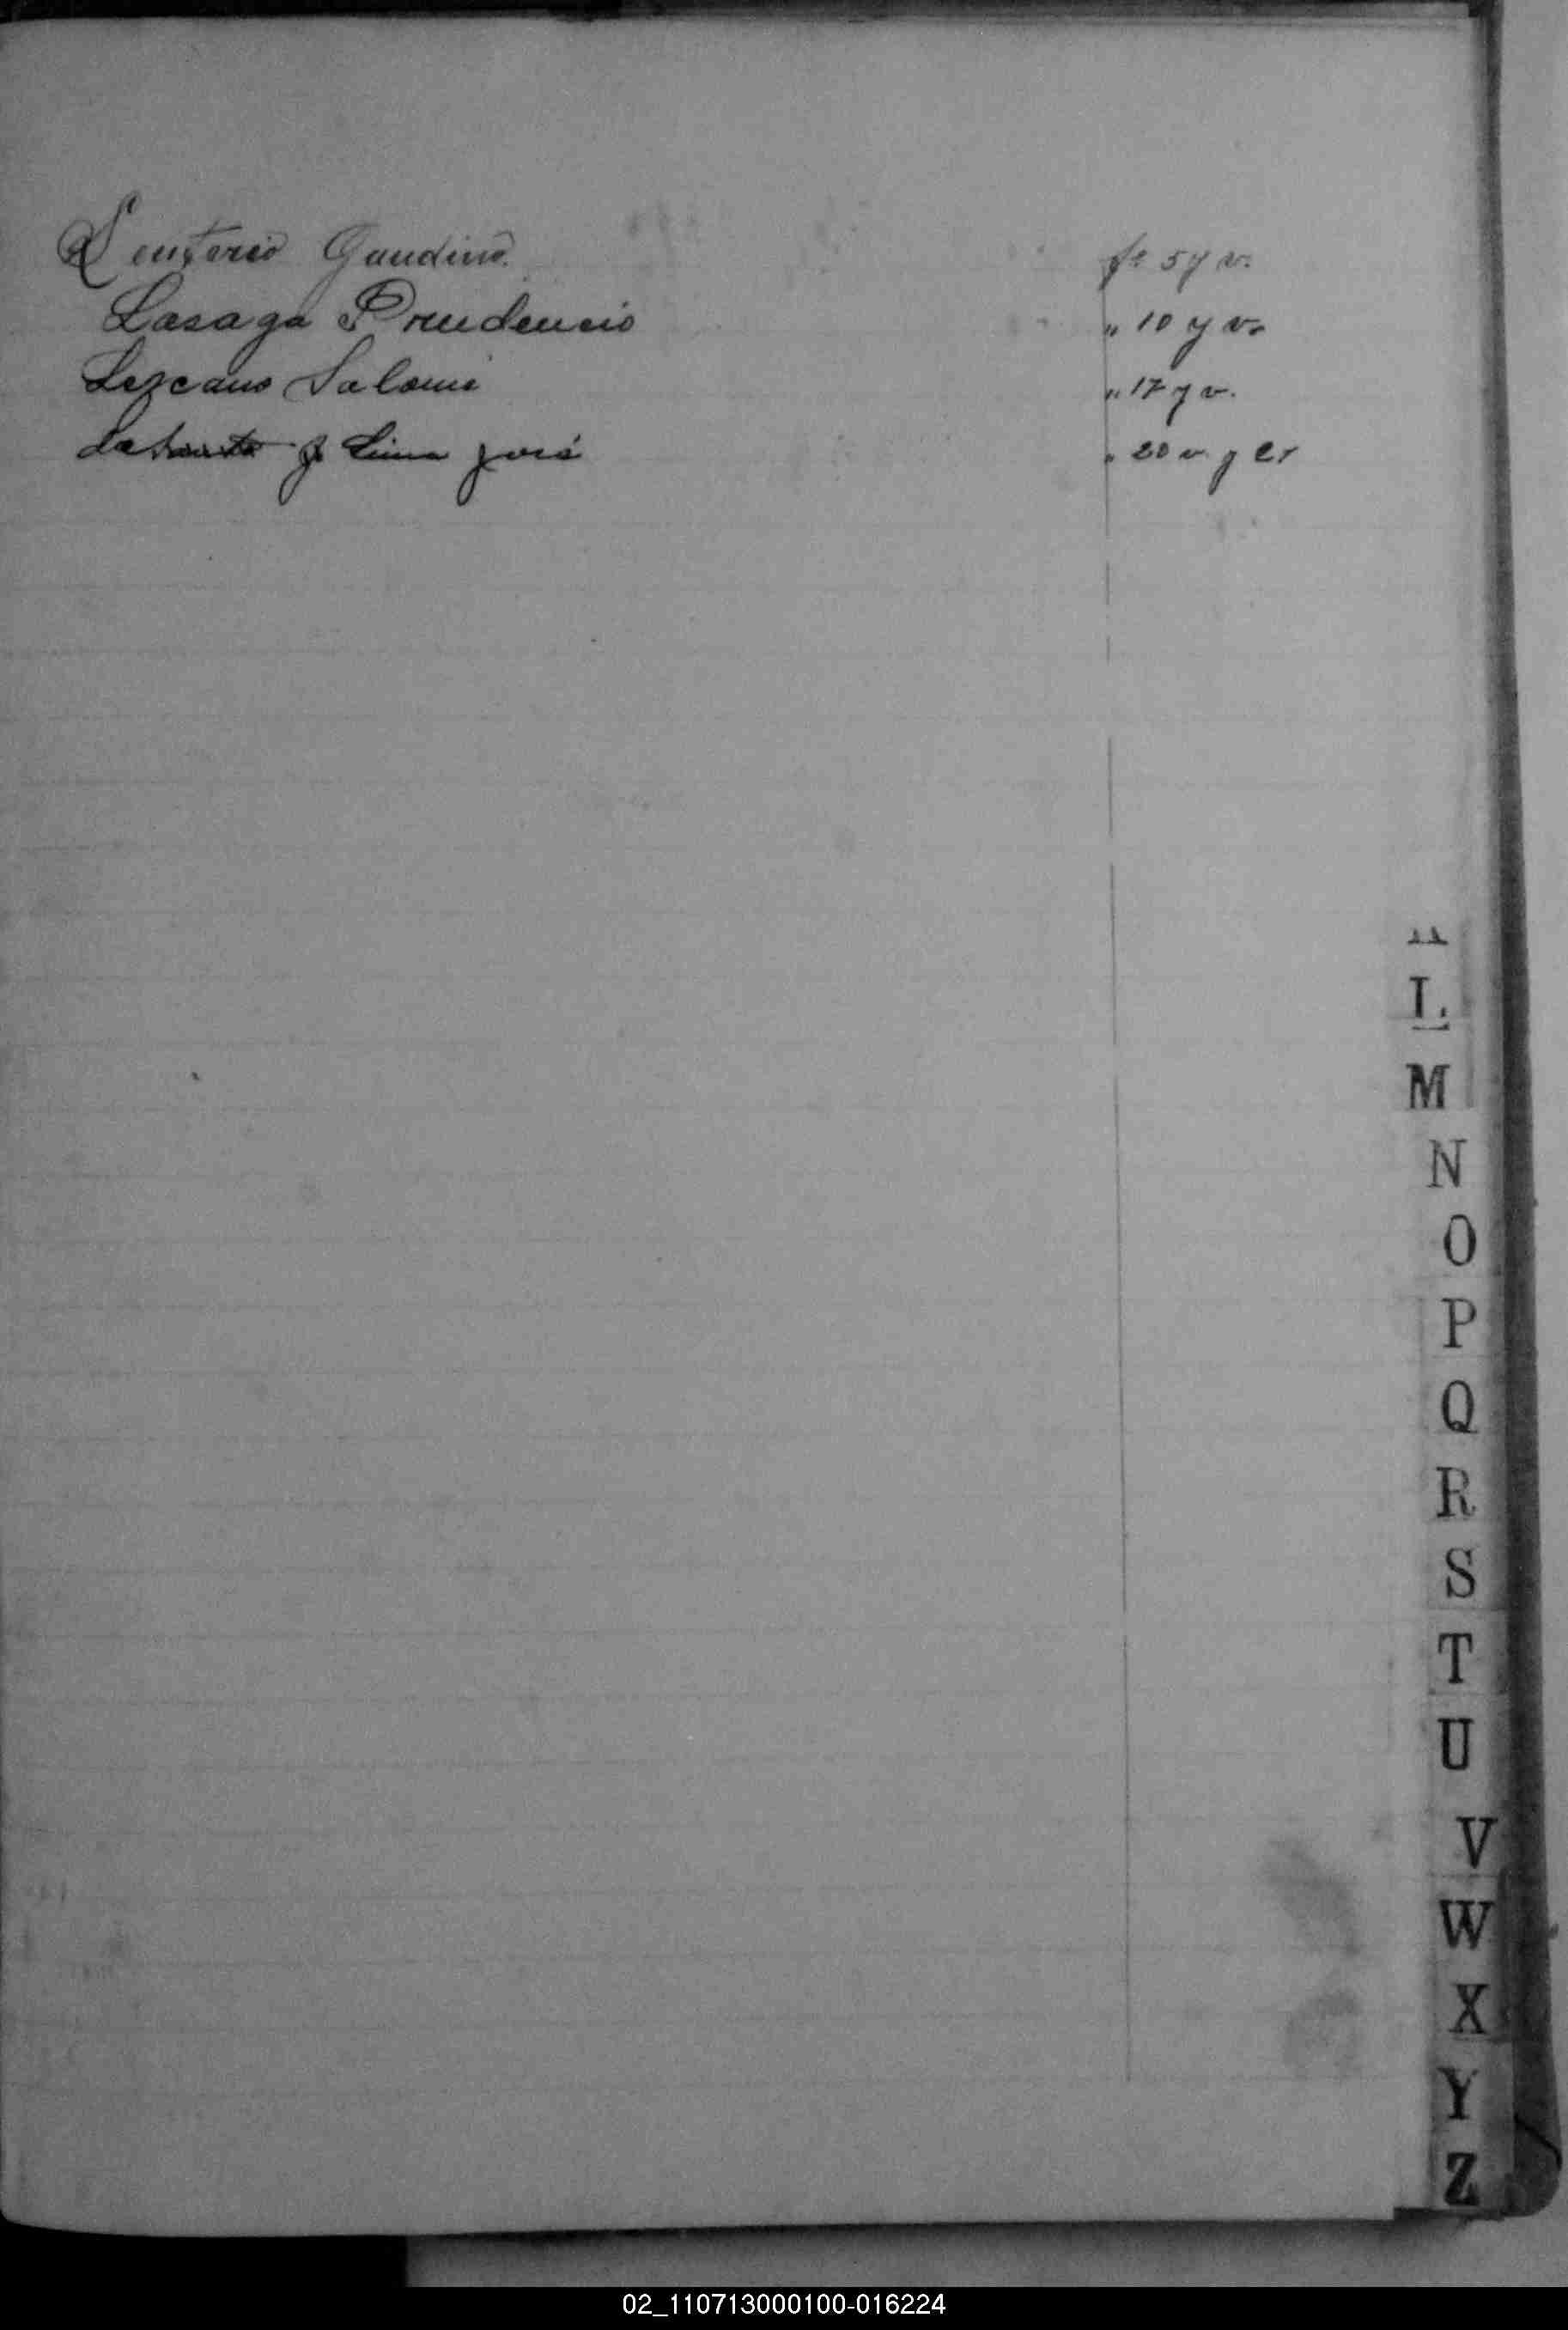 Gaudino fs 5 y v.
Lasaga Prudencio " 10 y v.
Lezcano Salomé " 17 y v.
y Lima José " 20 v. y 21
L
M
N
O
P
Q
R
S
T
U
V
W
X
Y
Z
02_110713000100-016224